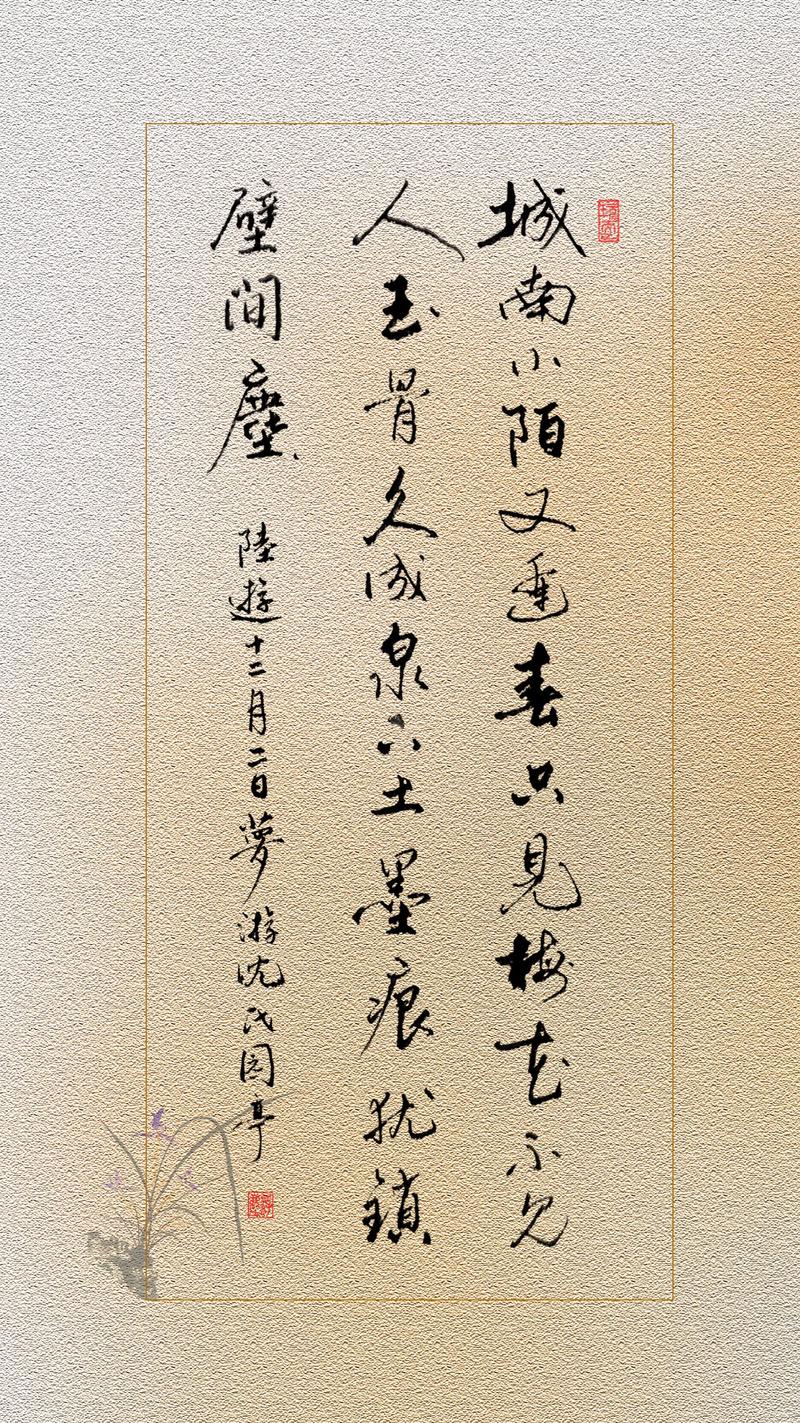 城南小陌又逢春只見梅花不见
人玉骨久成泉下土墨痕犹鎖
壁間塵 陸遊十二月二日夢游沈氏园亭